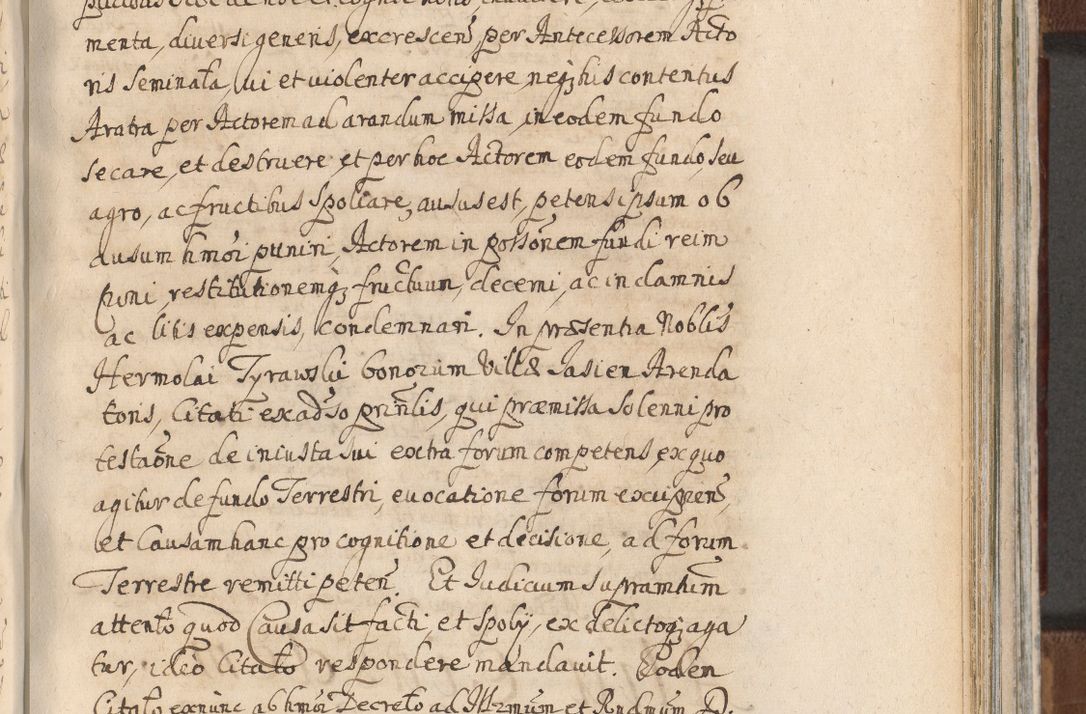 menta, diversi generis, excrescens per Antecessorem Acto
ris seminata, vi et violenter accipere, neqꝫ his contentus
Aratra per Actorem ad arandum missa, in eodem fundo
secare, et destruere et per hoc Actorem eodem fundo, seu
agro, ac fructibus spoliare, ausus est, petens ipsum ob
ausum hmōi puniri, Actorem in possōnem fundi reim
poni, restitutionemqꝫ fructuum, decerni, ac in damnis
ac litis expensis, condemnari. In præsentia Noblis
Hermolai Tyrawski bonorum Villæ Jasien Arenda
toris, Citati ex adṽso prīnlis, qui præmissa solenni pro
testaōne de iniusta sui extra forum competens, ex quo
agitur de fundo Terrestri, evocatione forum excipiens,
et Causam hanc pro cognitione et decisione, ad forum
Terrestre remitti peteñ. Et Judicium supramhim
attento quod Causa sit facti, et spolij, ex delictoqꝫ aga
tur, ideo Citato respondere mandavit. Eodem
Citato exnunc ab hmōi Decreto ad Illrmum et Rndmum D.